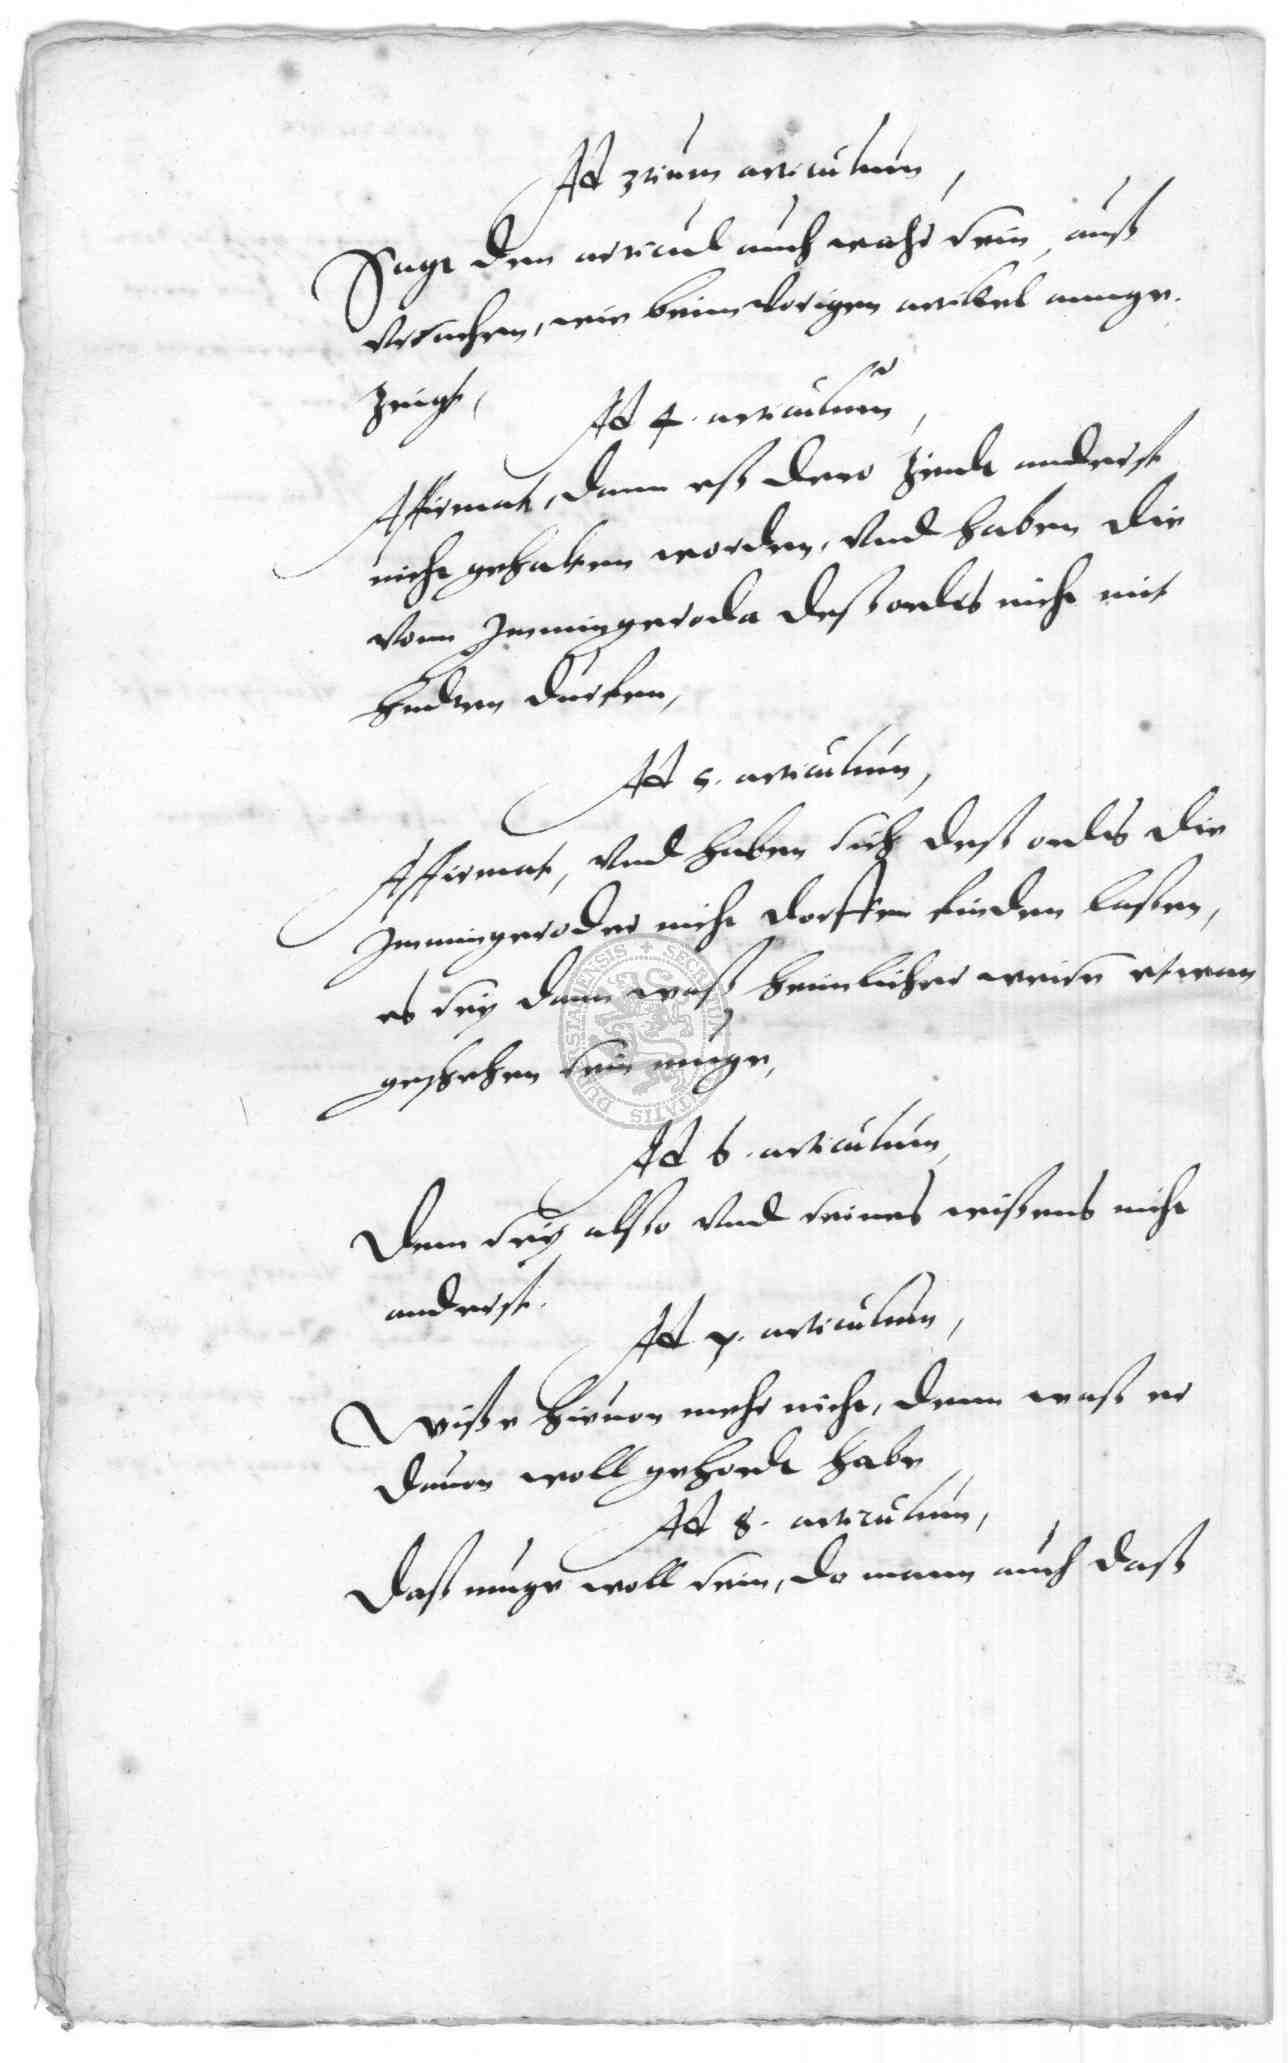 Ad 3tium articulum,
Sagt den articul auch wahr sein, auß
vrsachen, wie beim vorigen artikel ange-
zeigt,
Ad 4. articulum,
Affirmat, dann eß dero Zeidt anderst
nicht gehalten worden, vnd haben die
vonn Immingeroda deß ordts nicht mit
hudten durfen,
Ad 5. articulum,
Affirmat, vnd haben sich deß ordts die
Immingeroder nicht dorffen finden laßen,
es sey dann waß heimlicher weise etwan
geschehen sein muge,
Ad 6. articulum,
Dem sey also vnd seines wißens nicht
anderst.
Ad 7. articulum,
Wiße hieuon mehr nicht, denn waß er
dauon woll gehordt habe
Ad 8. articulum,
Daß muge woll sein, do mann auch daß
SECRETUM CIVITATIS DUDERSTADENSIS